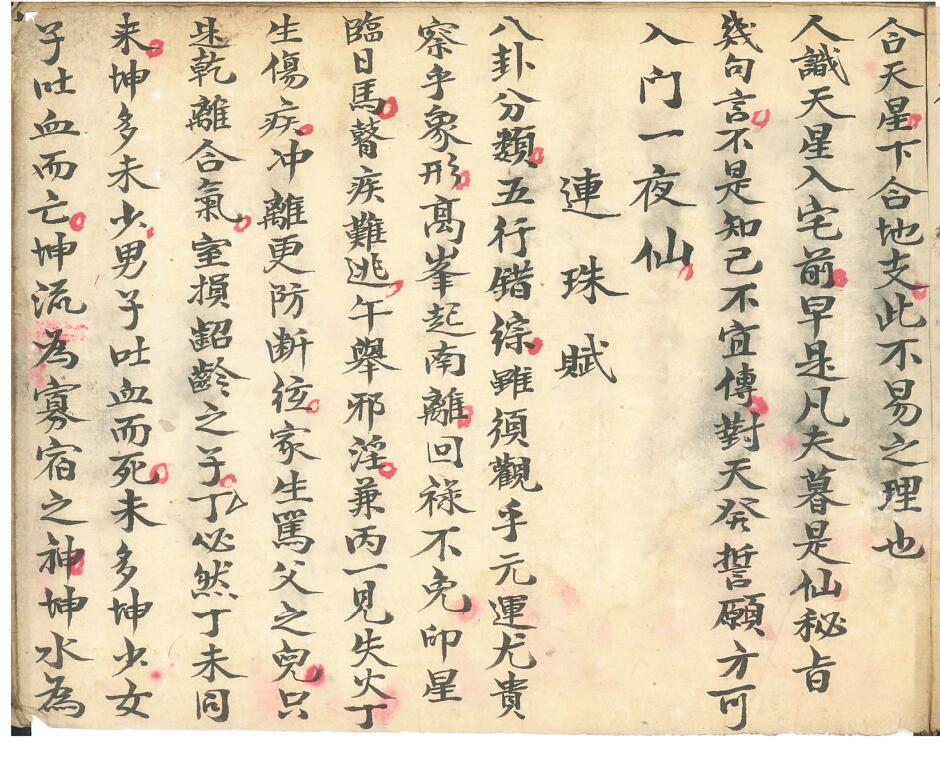 合天星下合地支此不易之理也
人識天星入宅前早是凡夫暮是仙秘旨
幾句言不是知己不宜傳對天發誓願方可
入门一夜仙
連珠賦
八卦分類五行錯綜雖須觀乎元運尤貴
察乎象形高峯起南離回祿不免印星
臨日馬瞽疾難逃午舉邪淫兼丙一見失火丁
生傷疾冲離更防断弦家生罵父之兒只
迷乾離合氣室損齠齡之子丁必然丁未同
来坤多未少男子吐血而死未多坤少女
子吐血而亡坤流為寡宿之神坤水為